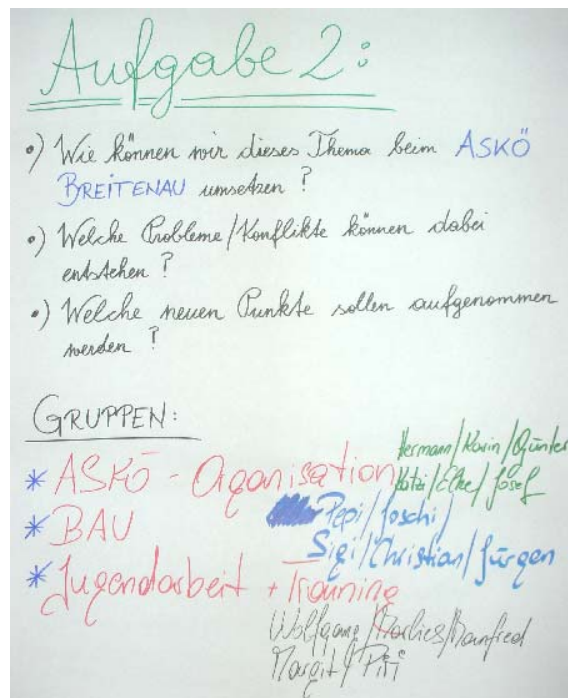 Aufgabe 2:
•) Wie können wir dieses Thema beim ASKÖ
BREITENAU umsetzen ?
•) Welche Probleme/Konflikte können dabei
entstehen ?
•) Welche neuen Punkte sollen aufgenommen
werden ?
GRUPPEN:
Hermann/Karin/Günter
* ASKÖ - Oganisation
/Elke/Josef
* BAU
Pepi/Joschi/
Sigi/Christian/Jürgen
* Jugendarbeit + Training
Wolfgang/Marlies/Manfred
Margit/Pits